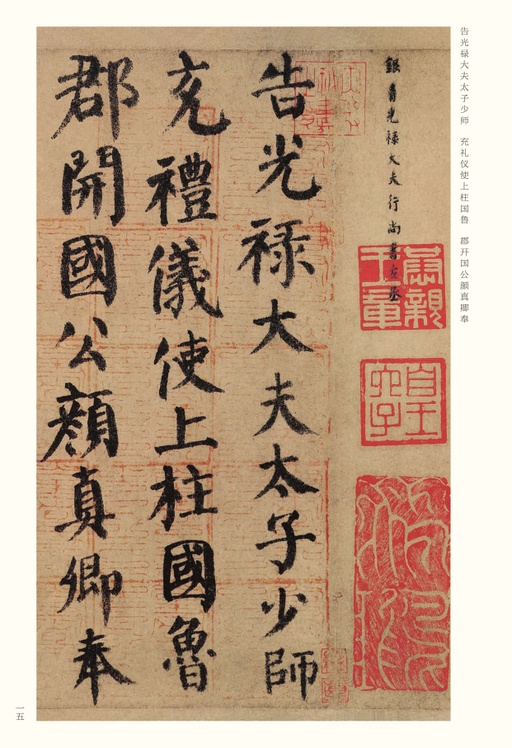 告光禄大夫太子少师 充礼仪使上柱国鲁 郡开国公颜真卿奉
銀青光禄大夫行尚書左丞
告光禄大夫太子少師
充禮儀使上柱國魯
郡開國公顔真卿奉
一五